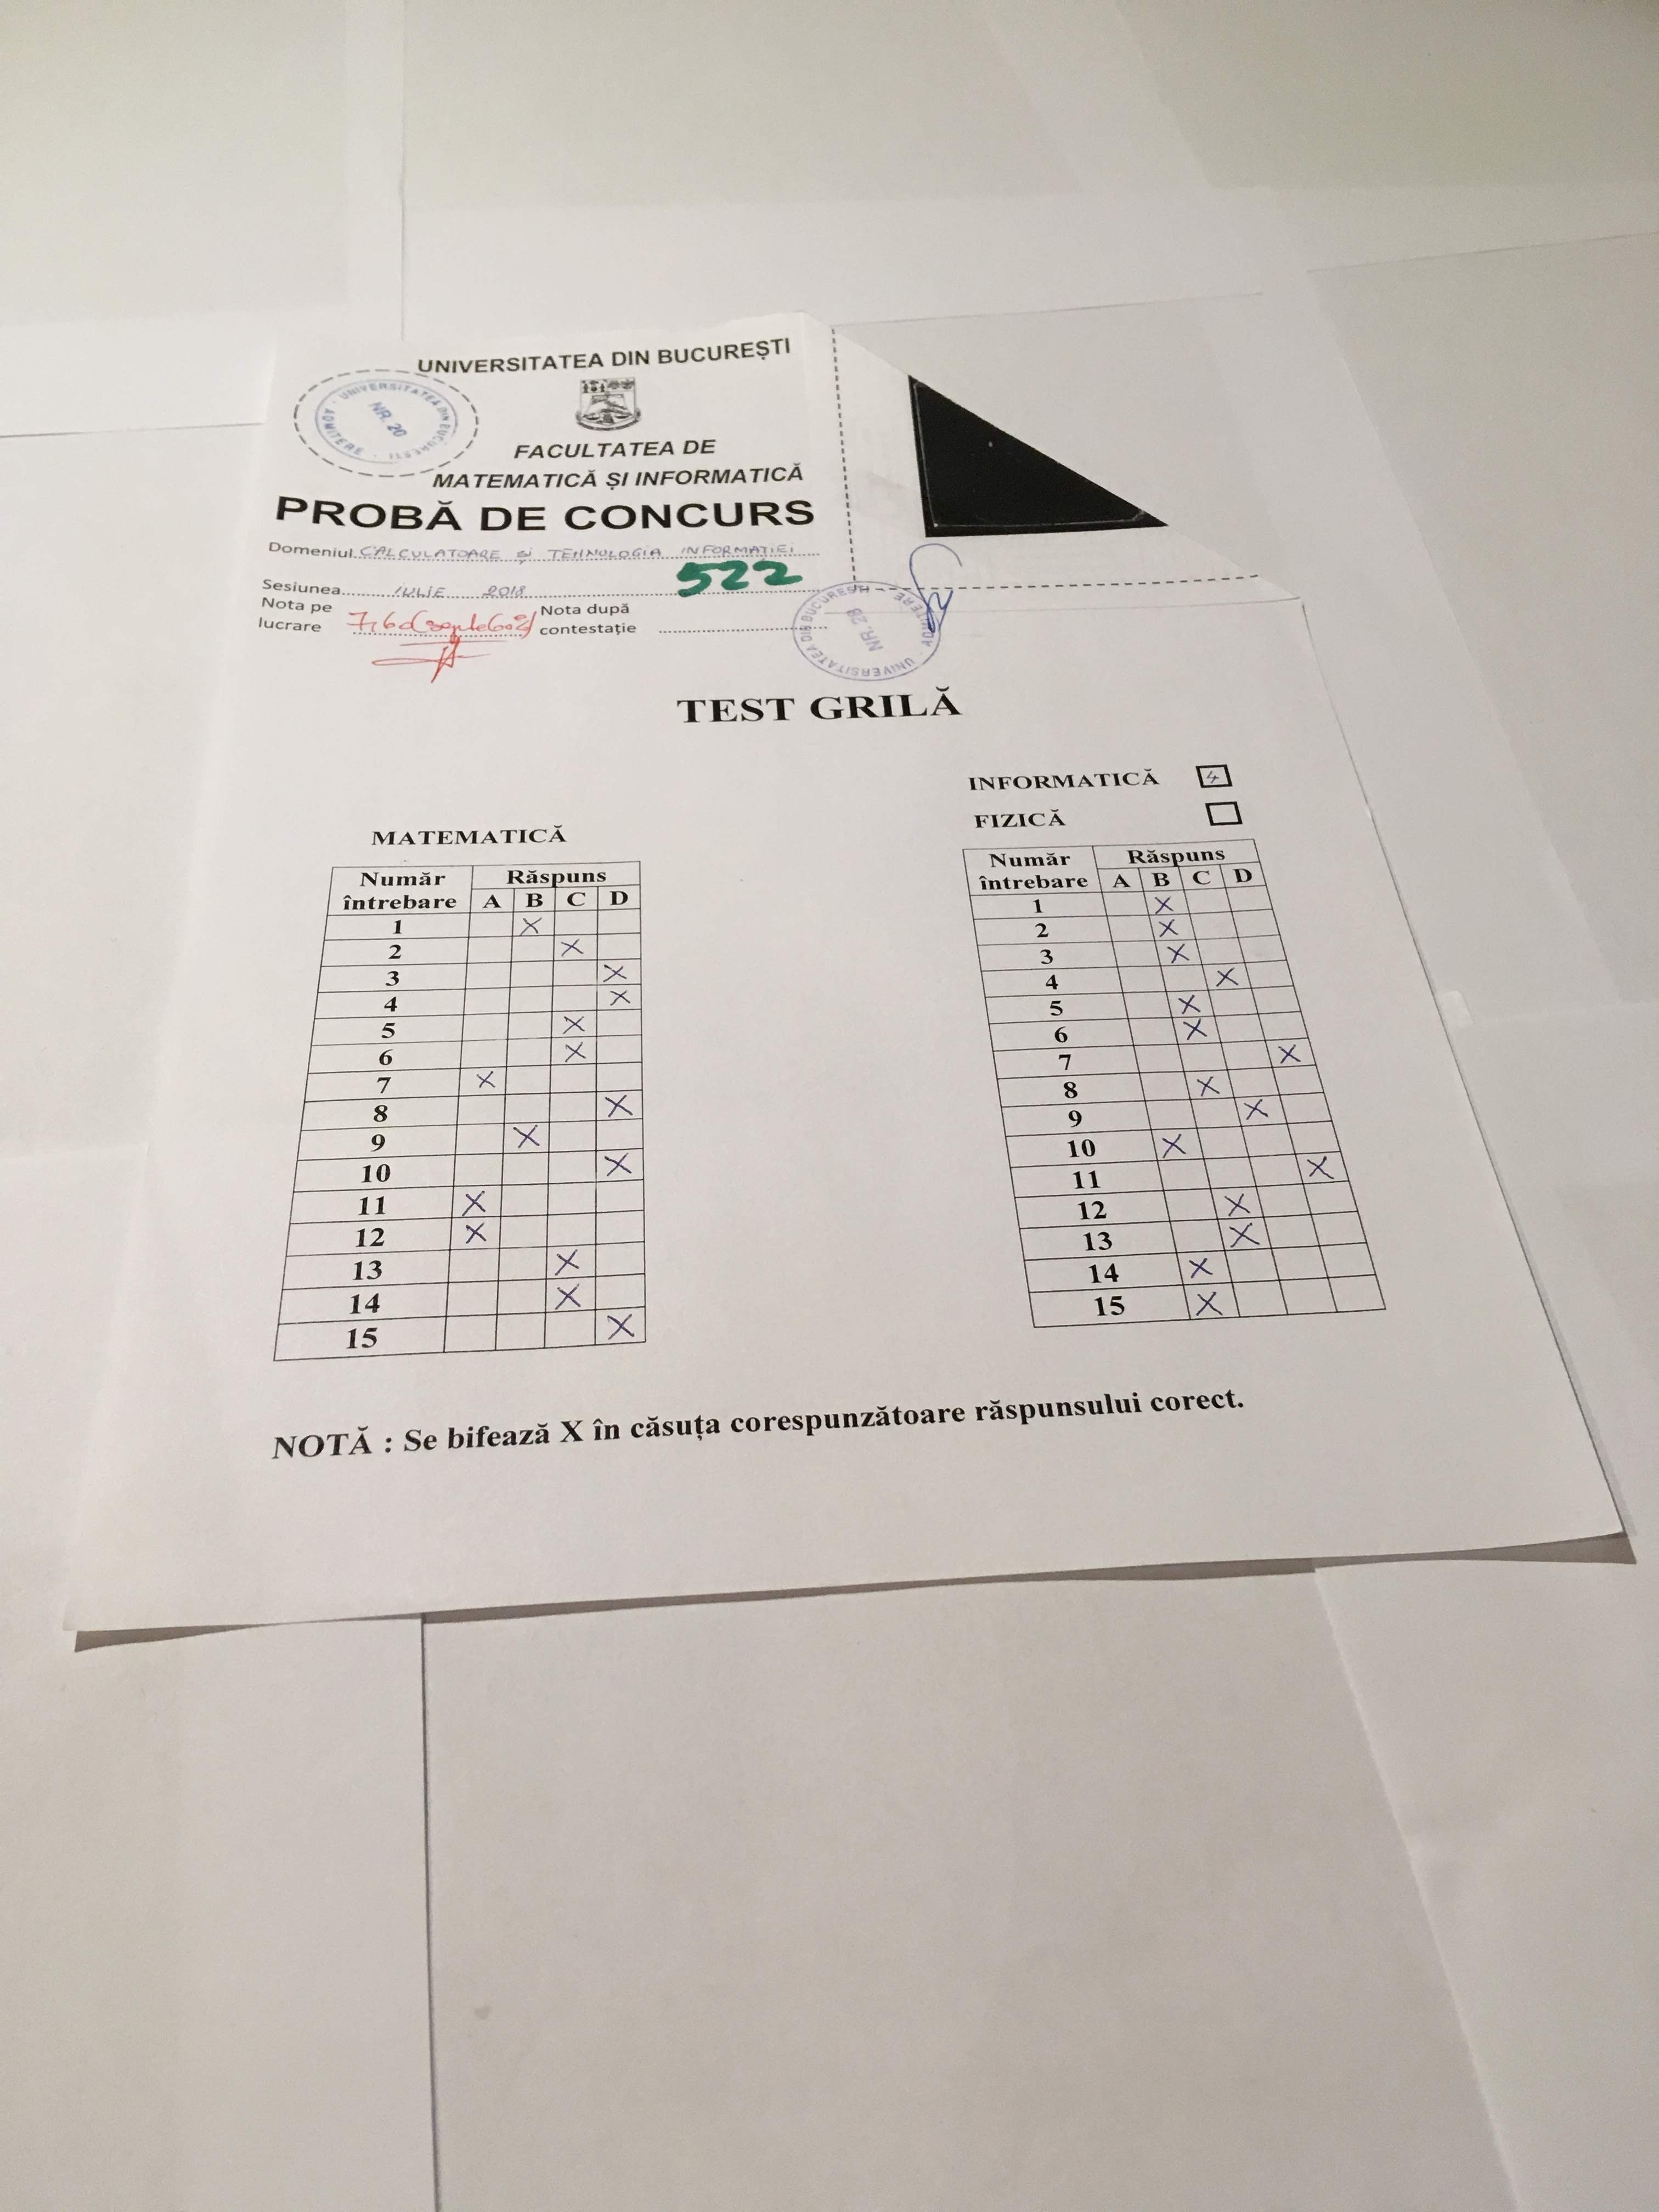 UNIVERSITATEA DIN BUCUREȘTI
UNIVERSITATEA DIN BUCUREȘTI · ADMITERE ·
NR. 20
FACULTATEA DE
MATEMATICĂ ȘI INFORMATICĂ
PROBĂ DE CONCURS
Domeniul CALCULATOARE și TEHNOLOGIA INFORMAȚIEI
522
Sesiunea IULIE 2018
Nota pe
lucrare 7,60
Nota după
contestație
UNIVERSITATEA DIN BUCUREȘTI · ADMITERE ·
NR. 28
TEST GRILĂ
MATEMATICĂ
Număr
întrebare
Răspuns
A B C D
1 X
2 X
3 X
4 X
5 X
6 X
7 X
8 X
9 X
10 X
11 X
12 X
13 X
14 X
15 X
INFORMATICĂ
FIZICĂ
Număr
întrebare
Răspuns
A B C D
1 X
2 X
3 X
4 X
5 X
6 X
7 X
8 X
9 X
10 X
11 X
12 X
13 X
14 X
15 X
NOTĂ : Se bifează X în căsuța corespunzătoare răspunsului corect.